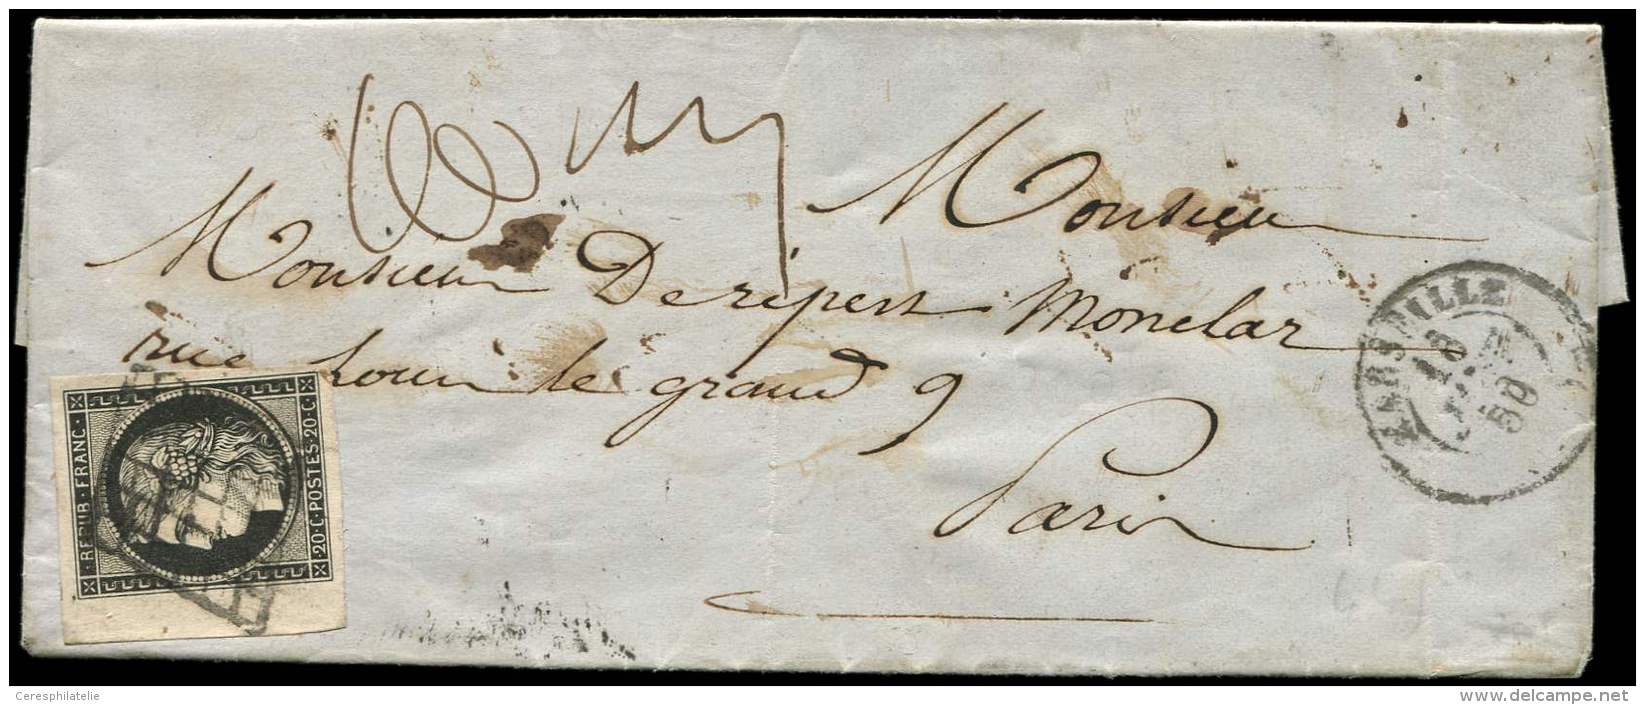 Monsieur
Monsieur De ripert Monclar
rue Louis le grand 9
Paris
MARSEILLE
18
50
REPUB·FRANC·
·20·C·POSTES·20·C·
Ceresphilatelie
www.delcampe.net